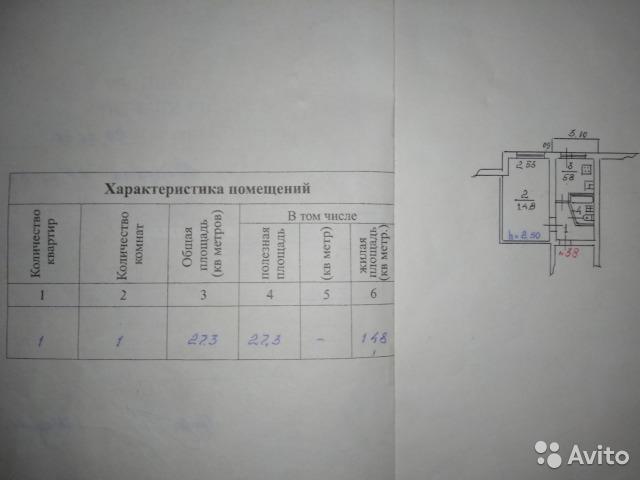 Характеристика помещений
Количество квартир
Количество комнат
Общая площадь (кв метров)
В том числе
полезная площадь
(кв метр)
жилая площадь (кв метр.)
1 2 3 4 5 6
1 1 27.3 27,3 - 14.8
3,10
2,55
3
5.8
2
14.8
h=2.50
38
Avito